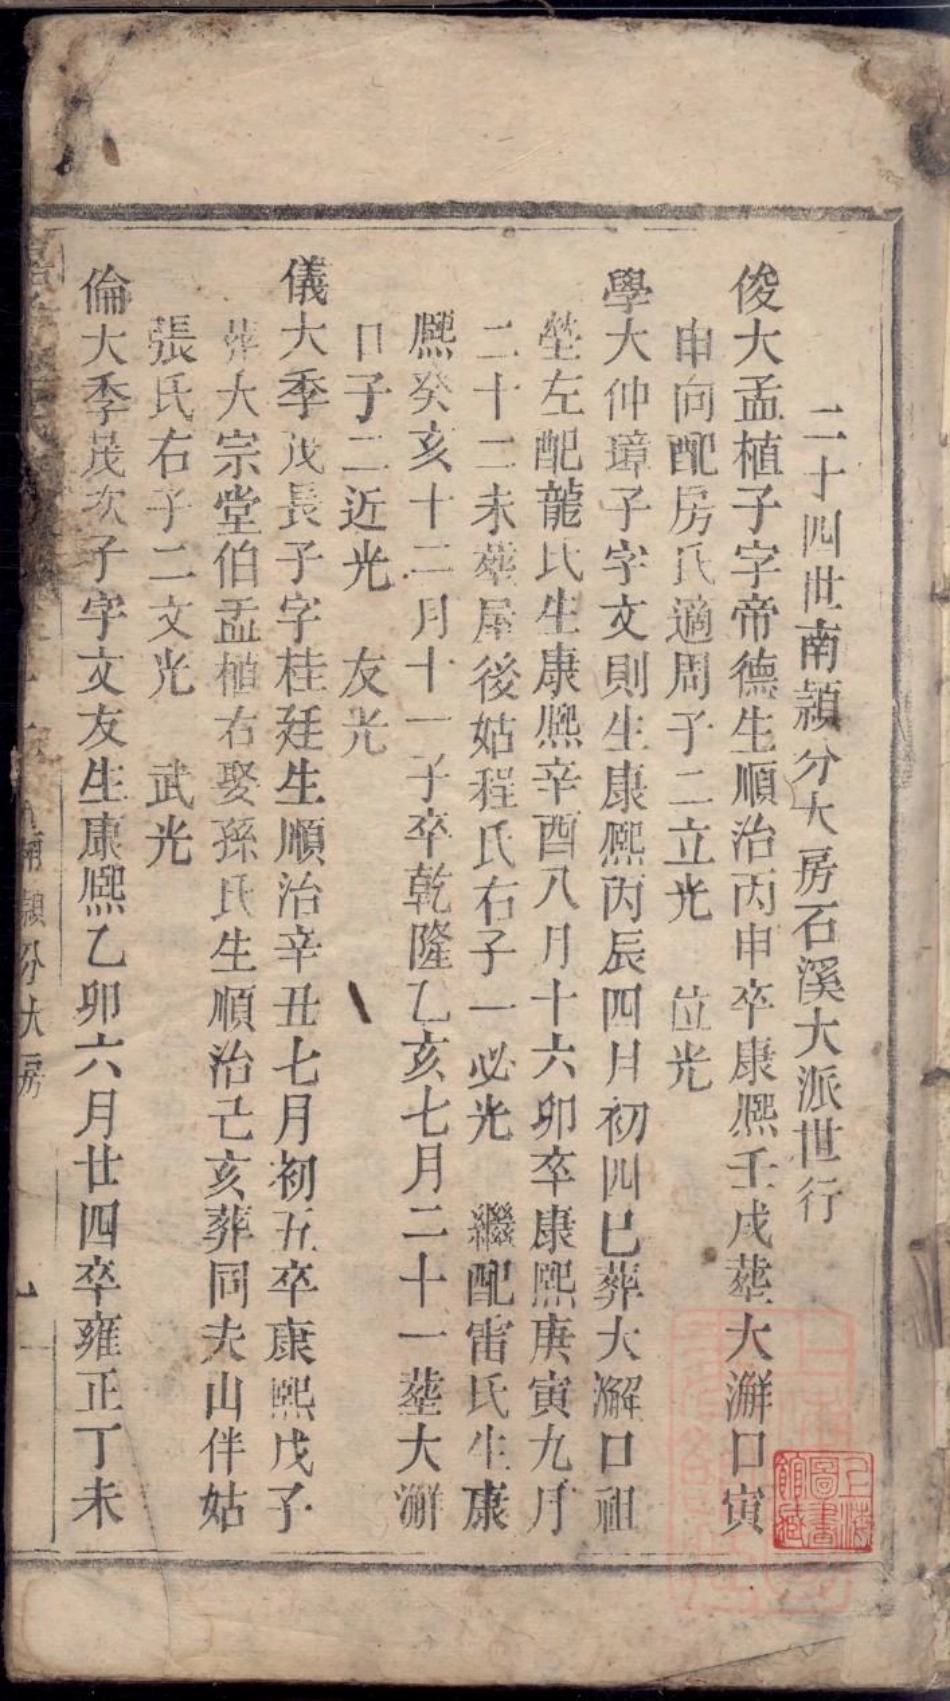 二十四世南潁分大房石溪大派世行
俊大孟植子字帝德生順治丙申卒康熈壬戌塟大澥口寅
申向配房氏適周子二立光 位光
學大仲璋子字文則生康熈丙辰四月初四巳葬大澥口祖
塋左配龍氏生康熈辛酉八月十六卯卒康熈庚寅九月
二十二未塟屋後姑程氏右子一必光 繼配雷氏生康
熈癸亥十二月十一子卒乾隆乙亥七月二十一塟大澥
口子二近光 友光
儀大季茂長子字桂廷生順治辛丑七月初五卒康熙戊子
葬大宗堂伯孟植右娶孫氏生順治己亥葬同夫山伴姑
張氏右子二文光 武光
倫大季茂次子字文友生康熈乙卯六月廿四卒雍正丁未
南潁分大房
上海圖書館藏